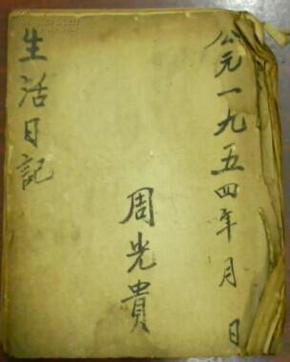 公元一九五四年 月 日
周光貴
生活日記